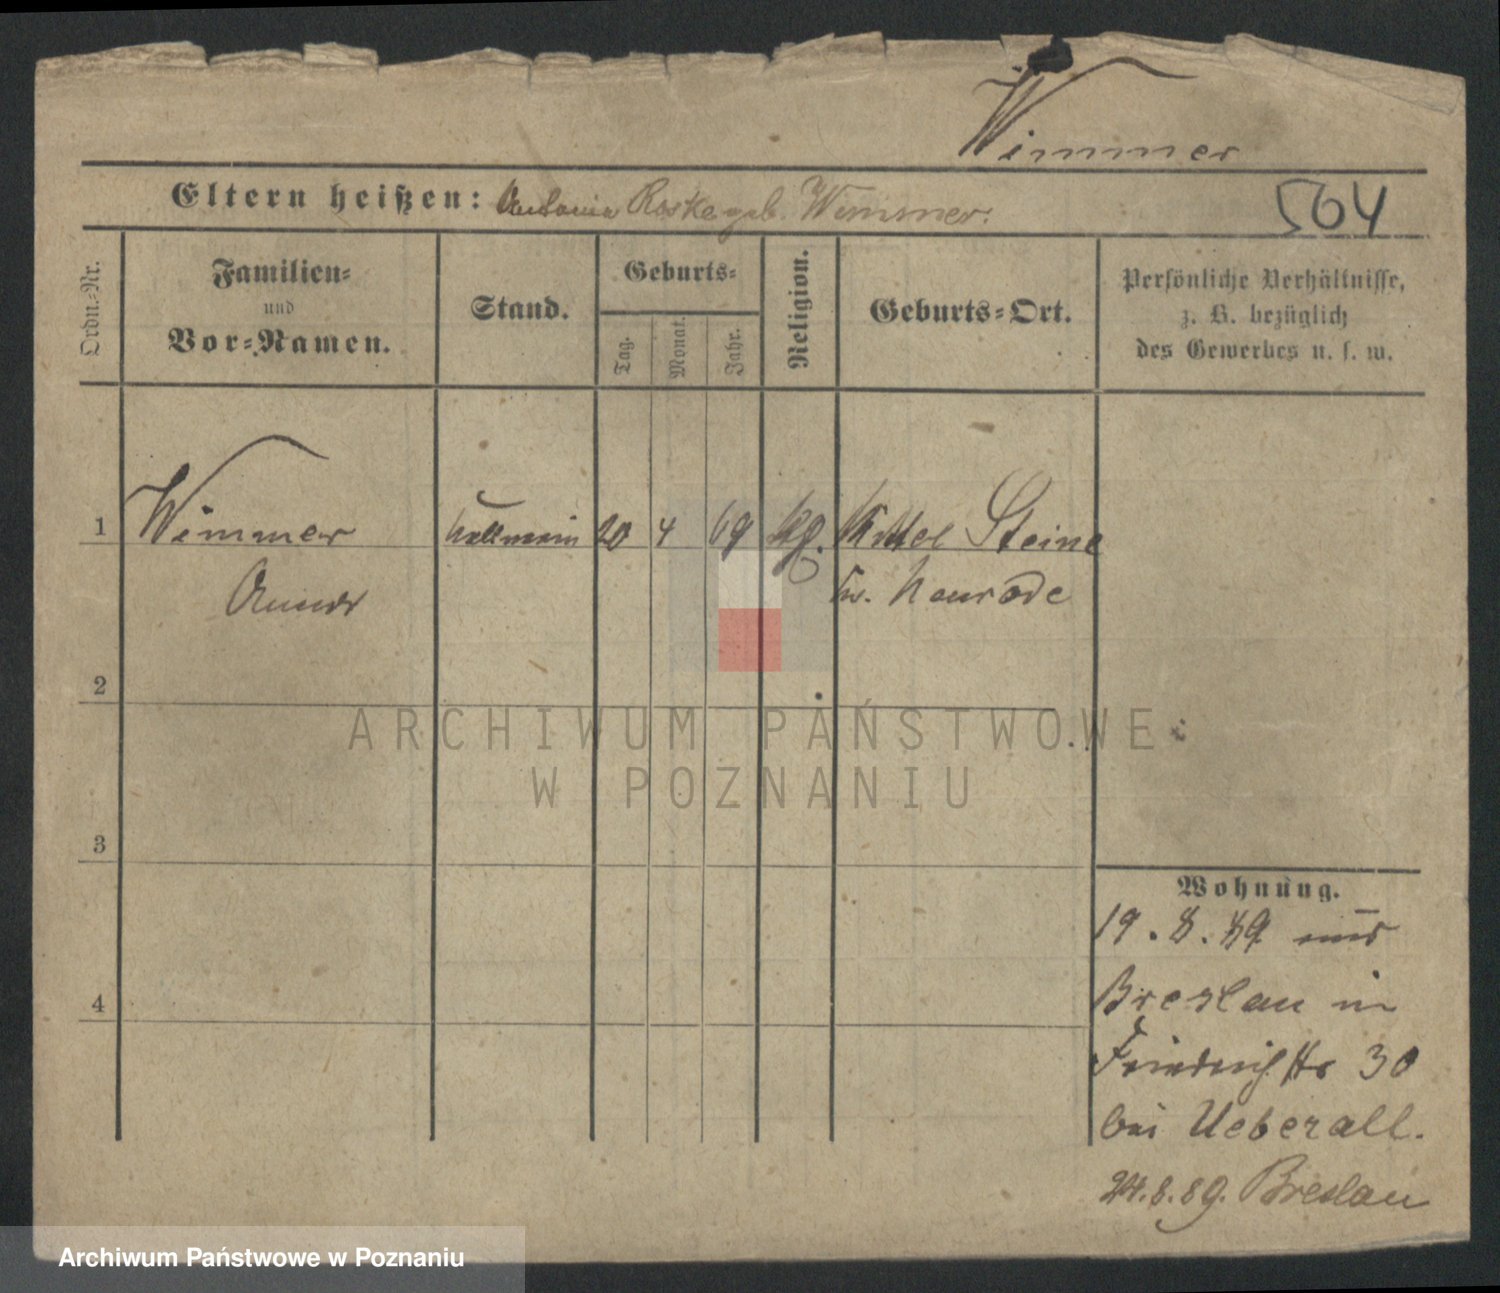 Wimmer
Eltern heißen: Antonie Raske geb. Wimmer.
504
Ordn.-Nr.
Familien-
und
Vor-Namen.
Stand.
Geburts-
Tag.
Monat.
Jahr.
Religion.
Geburts-Ort.
Persönliche Verhältnisse,
z. B. bezüglich
des Gewerbes u. s. w.
1 Wimmer 20 4 69 Kittel Steine
Kr. Neurode
2
3
4
Wohnung.
19. 8. 89 aus
Breslau in
Friedrichstr 30
bei Ueberall.
24.8.89. Breslau
ARCHIWUM PAŃSTWOWE
W POZNANIU
Archiwum Państwowe w Poznaniu